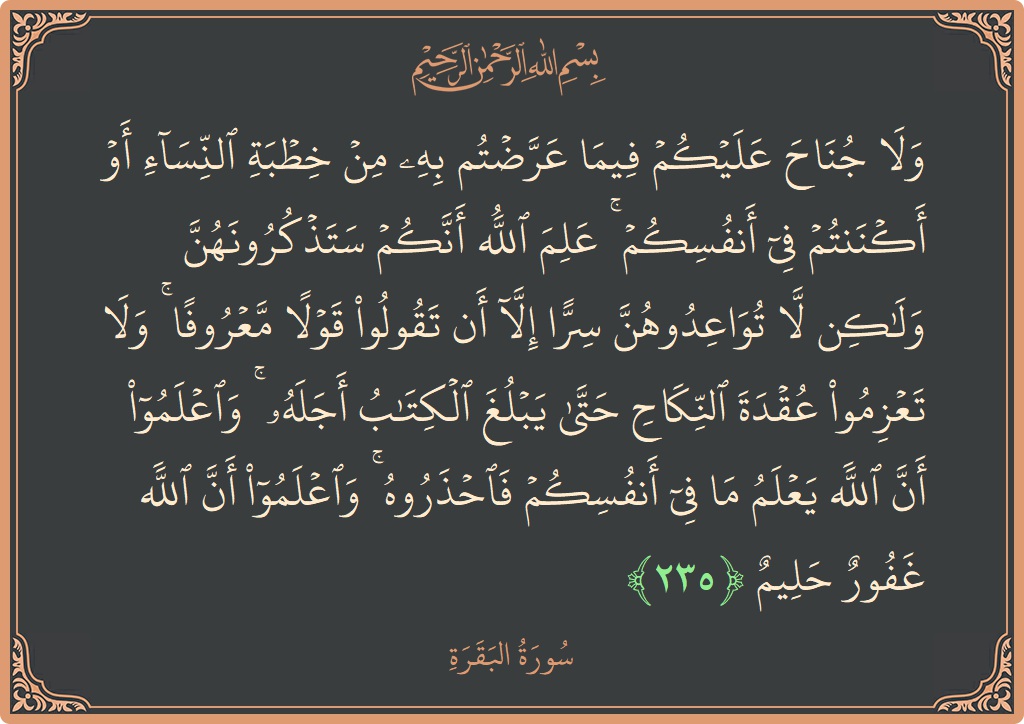 بِسْمِ اللهِ الرَّحْمٰنِ الرَّحِيْمِ
وَلَا جُنَاحَ عَلَيۡكُمۡ فِيمَا عَرَّضۡتُم بِهِۦ مِنۡ خِطۡبَةِ ٱلنِّسَآءِ أَوۡ
أَكۡنَنتُمۡ فِيٓ أَنفُسِكُمۡۚ عَلِمَ ٱللَّهُ أَنَّكُمۡ سَتَذۡكُرُونَهُنَّ
وَلَٰكِن لَّا تُوَاعِدُوهُنَّ سِرًّا إِلَّآ أَن تَقُولُواْ قَوۡلٗا مَّعۡرُوفٗاۚ وَلَا
تَعۡزِمُواْ عُقۡدَةَ ٱلنِّكَاحِ حَتَّىٰ يَبۡلُغَ ٱلۡكِتَٰبُ أَجَلَهُۥۚ وَٱعۡلَمُوٓاْ
أَنَّ ٱللَّهَ يَعۡلَمُ مَا فِيٓ أَنفُسِكُمۡ فَٱحۡذَرُوهُۚ وَٱعۡلَمُوٓاْ أَنَّ ٱللَّهَ
غَفُورٌ حَلِيمٞ ﴿٢٣٥﴾
سُورَةُ البَقَرَةِ